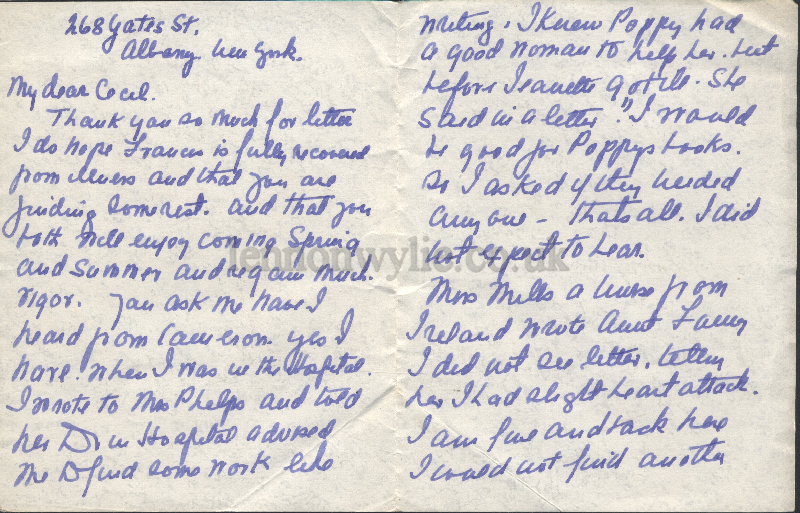 268 Yates St.
Albany New York.
My dear Cecil.
Thank you so much for letter
I do hope Francis is fully recovered
from illness and that you are
finding some rest. and that you
both will enjoy coming Spring
and Summer and regain much
vigor. You ask me have I
heard from Cameron yes I
have. When I was in the Hospital.
I wrote to Mrs Phelps and told
her Dr in Hospital advised
me to find some work like
writing. I knew Poppy had
a good woman to help her. but
before Jeanette got ill. She
said in a letter "I would
be good for Poppys books.
So I asked if they needed
anyone - thats all. I did
not expect to hear.
Mrs Mills a nurse from
Ireland wrote Aunt Fanny
I did not see letter. telling
her I had slight heart attack.
I am fine and back here
I could not find another
lennonwylie.co.uk